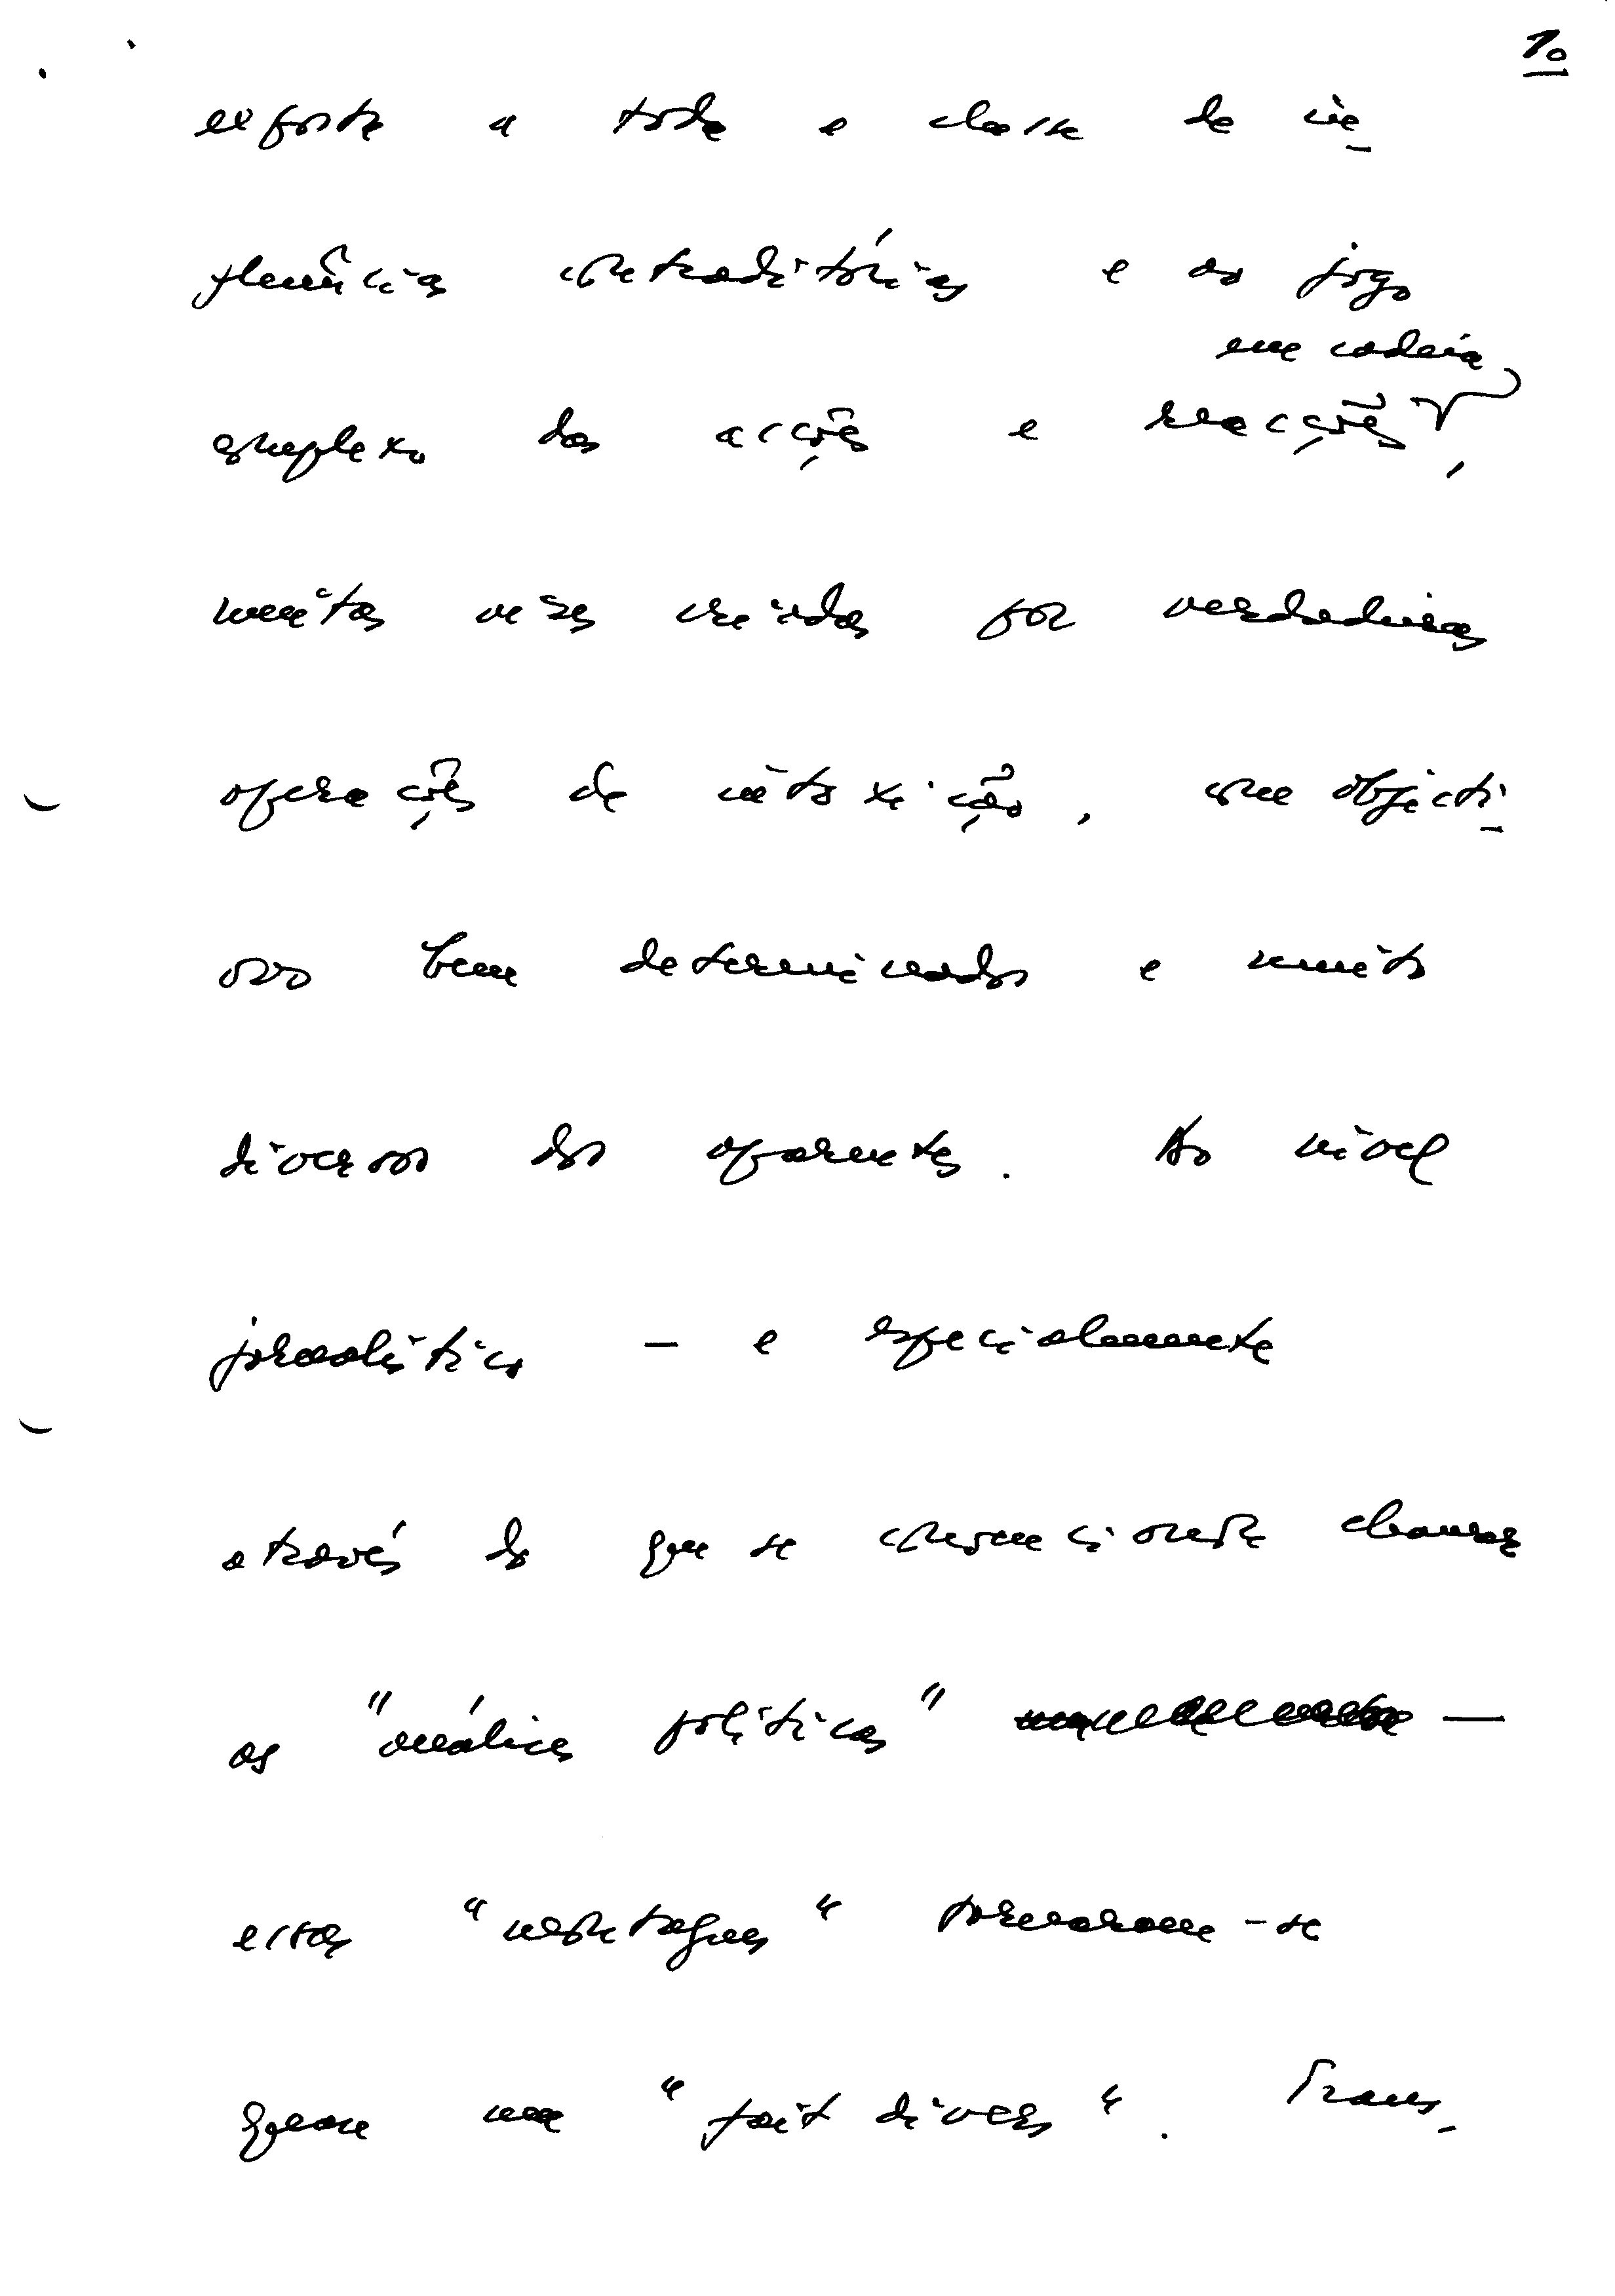 10
exposta a toda a classe de in-
fluências contraditórias e ao jogo
em cadeia
complexo das acções e reacções,
muitas vezes criadas por verdadeiras
operações de intoxicação, com objecti-
vos bem determinados e muito
diversos dos aparentes. Ao nível
jornalístico – e especialmente
através do que se convencionou chamar
as "análises políticas" —
essas "reportagens" tornaram-se
quase um "fait divers". Trans-